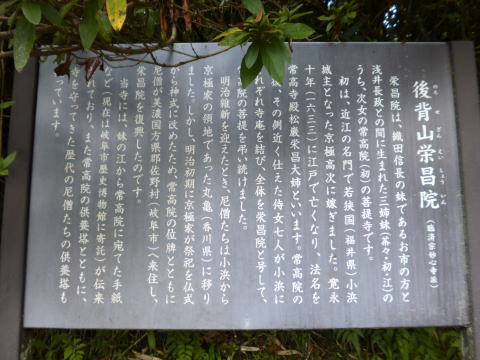 後背山栄昌院
のちせざんえいしょういん
(臨済宗妙心寺派)
栄昌院は、織田信長の妹であるお市の方と
浅井長政との間に生まれた三姉妹(茶々・初・江)の
うち、次女の常高院(初)の菩提寺です。
初は、近江の名門で若狭国(福井県)小浜
城主となった京極高次に嫁ぎました。寛永
十年(一六三三)に江戸で亡くなり、法名を
常高寺殿松巌栄昌大姉といいます。常高院の
後、その側近く仕えた侍女七人が小浜に
れぞれ寺庵を結び、全体を栄昌院と号して、
院の菩提を弔い続けました。
明治維新を迎えたとき、尼僧たちは小浜から
京極家の領地であった丸亀(香川県)に移り
ました。しかし、明治初期に京極家が祭祀を仏式
から神式に改めたため、常高院の位牌とともに
尼僧が美濃国方県郡佐野村(岐阜市)へ来住し、
栄昌院を復興したのです。
当寺には、妹の江から常高院に宛てた手紙
など(現在は岐阜市歴史博物館に寄託)が伝来
れており、また常高院の供養塔とともに、
寺を守ってきた歴代の尼僧たちの供養塔も
っています。